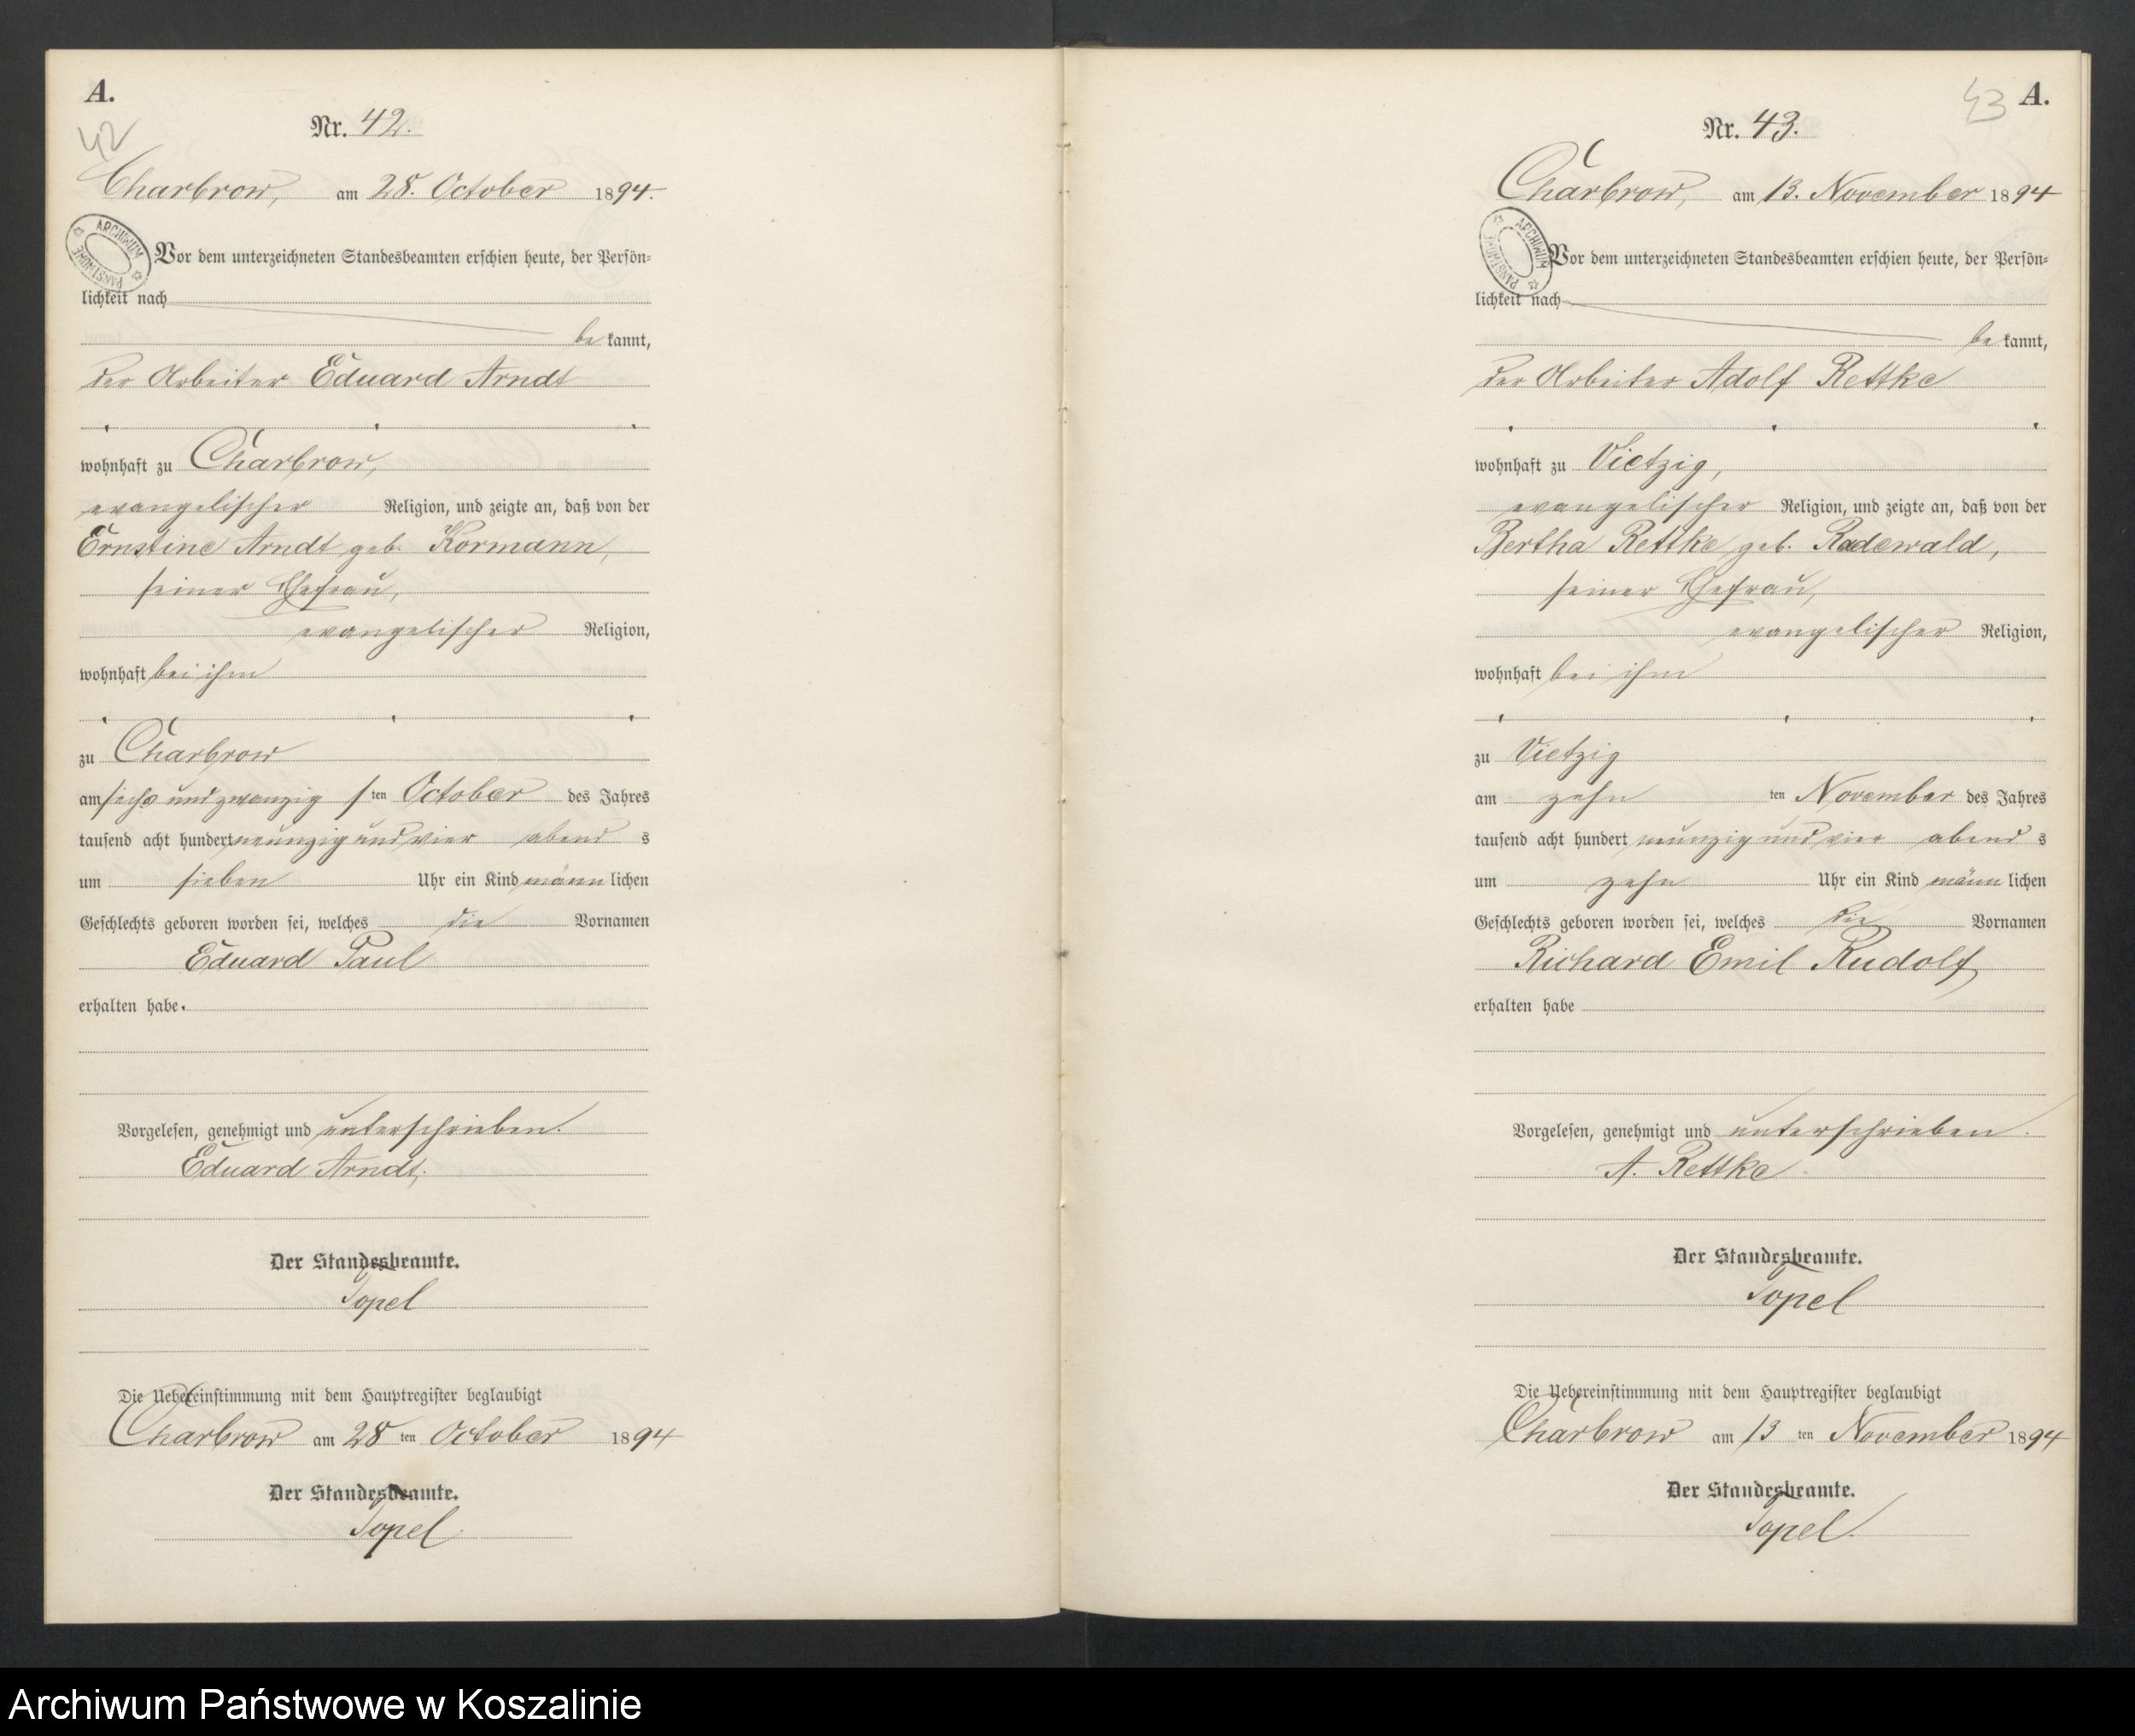 A.
42
Nr. 42.
Charbrow, am 28. October 1894.
ARCHIWUM PAŃSTWOWE
Vor dem unterzeichneten Standesbeamten erschien heute, der Persön-
lichkeit nach
bekannt,
der Arbeiter Eduard Arndt
wohnhaft zu Charbrow,
evangelischer Religion, und zeigte an, daß von der
Ernstine Arndt geb. Kormann,
seiner Ehefrau,
evangelischer Religion,
wohnhaft bei ihm
zu Charbrow
am sechs und zwanzigsten October des Jahres
tausend acht hundert neunzig und vier abends
um sieben Uhr ein Kind männlichen
Geschlechts geboren worden sei, welches die Vornamen
Eduard Paul
erhalten habe.
Vorgelesen, genehmigt und unterschrieben.
Eduard Arndt.
Der Standesbeamte.
Topel
Die Uebereinstimmung mit dem Hauptregister beglaubigt
Charbrow am 28 ten October 1894
Der Standesbeamte.
Topel.
43 A.
Nr. 43.
Charbrow, am 13. November 1894
ARCHIWUM PAŃSTWOWE
Vor dem unterzeichneten Standesbeamten erschien heute, der Persön-
lichkeit nach
bekannt,
der Arbeiter Adolf Rettke
wohnhaft zu Vietzig,
evangelischer Religion, und zeigte an, daß von der
Bertha Rettke geb. Radewald,
seiner Ehefrau,
evangelischer Religion,
wohnhaft bei ihm
zu Vietzig
am zehn ten November des Jahres
tausend acht hundert neunzig und vier abends
um zehn Uhr ein Kind männlichen
Geschlechts geboren worden sei, welches die Vornamen
Richard Emil Rudolf
erhalten habe
Vorgelesen, genehmigt und unterschrieben.
A. Rettke
Der Standesbeamte.
Topel
Die Uebereinstimmung mit dem Hauptregister beglaubigt
Charbrow am 13 ten November 1894
Der Standesbeamte.
Topel.
Archiwum Państwowe w Koszalinie